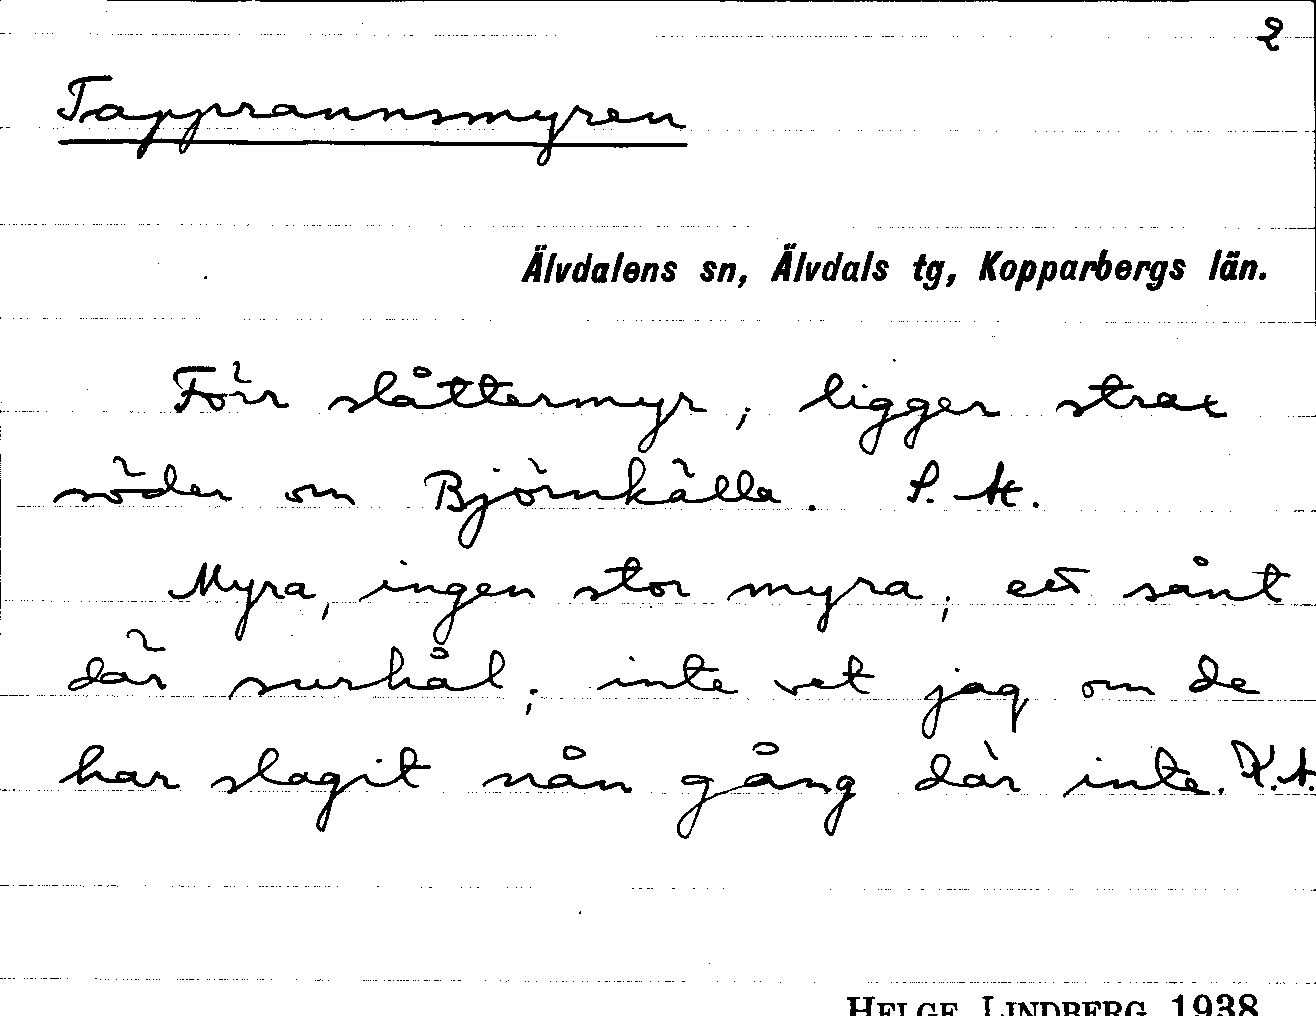 2
Tapprannsmyren
Älvdalens sn, Älvdals tg, Kopparbergs län.
Förr slåttermyr; ligger strax
söder om Björnkälla. P. M.
Myra, ingen stor myra; ett sånt
där surhål; inte vet jag om de
har slagit nån gång där inte. K.A.
HELGE LINDBERG 1938